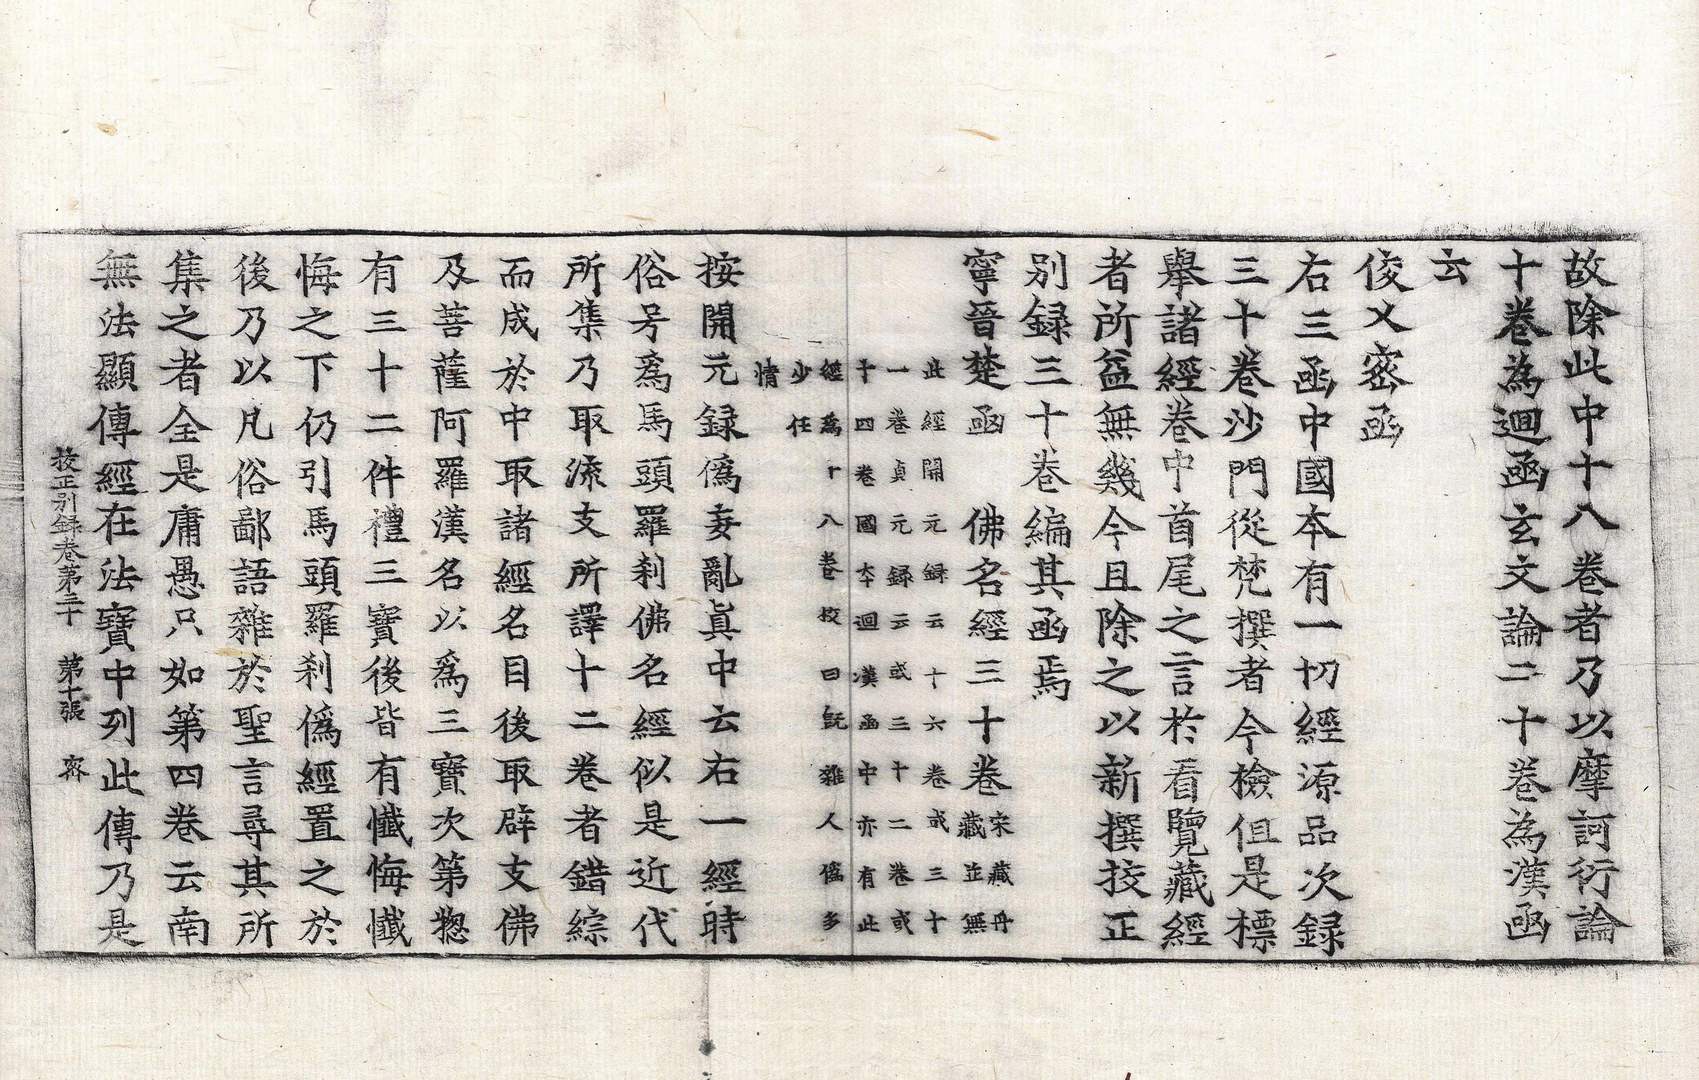 故除此中十八卷者乃以摩訶衍論
十卷為迴函玄文論二十卷為漢函
云
俊乂密函
右三函中國本有一切經源品次録
三十卷沙門從梵撰者今檢但是標
舉諸經卷中首尾之言於看覽藏經
者所益無幾今且除之以新撰挍正
别録三十卷編其函焉
寧晉楚函　佛名經三十卷宋藏丹
藏並無
此經開元録云十六卷或三十
一卷貞元録云或三十二卷或
十四卷國本迴漢函中亦有此
經爲十八卷挍曰既雜人僞多
少任
情
按開元録僞妄亂真中云右一經時
俗号爲馬頭羅刹佛名經似是近代
所集乃取流支所譯十二卷者錯綜
而成於中取諸經名目後取辟支佛
及菩薩阿羅漢名以爲三寶次第㧾
有三十二件禮三寶後皆有懺悔懺
悔之下仍引馬頭羅刹僞經置之於
後乃以凡俗鄙語雜於聖言尋其所
集之者全是庸愚只如第四卷云南
無法顯傳經在法寶中列此傳乃是
挍正别録卷第三十　第十張　密